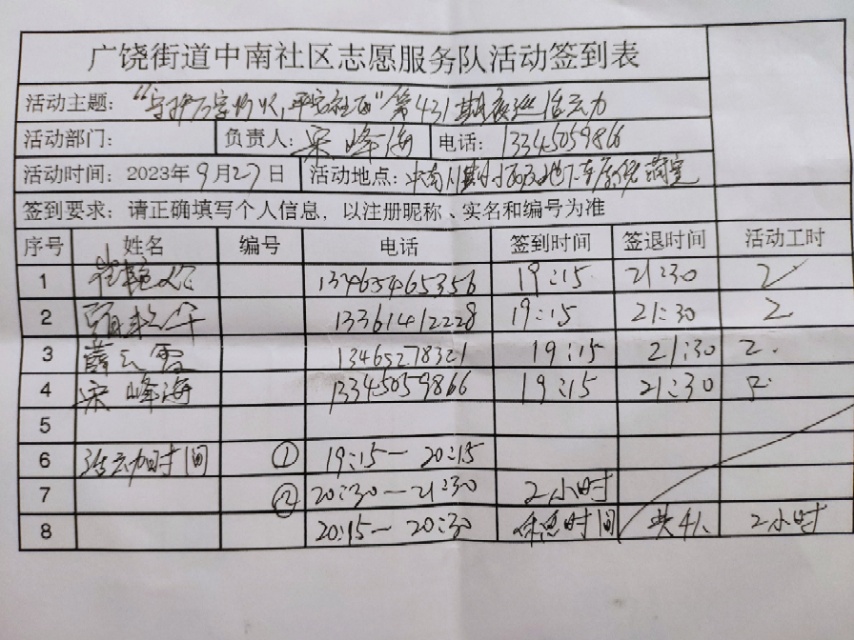 广饶街道中南社区志愿服务队活动签到表
活动主题：“守护万家灯火，平安社区”第431期夜巡活动
活动部门： 负责人：宋峰海 电话：13345059866
活动时间：2023年9月27日 活动地点：中南
签到要求：请正确填写个人信息，以注册昵称、实名和编号为准
序号 姓名 编号 电话 签到时间 签退时间 活动工时
1 19:15 21:30 2
2 13361412228 19:15 21:30 2
3 薛云霞 13465278321 19:15 21:30 2
4 宋峰海 13345059866 19:15 21:30 2
5
6 活动时间 ① 19:15—20:15
7 ② 20:30—21:30 2小时
8 20:15—20:30 休息时间 共4人 2小时